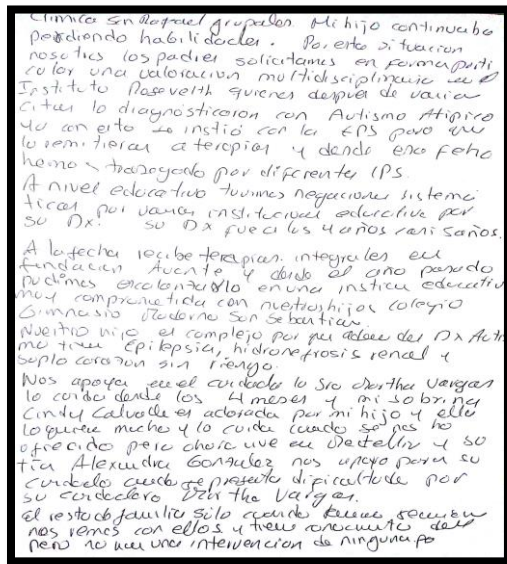 Clinica San Rafael grupales. Mi hijo continuaba
perdiendo habilidades. Por esta situacion
nosotros los padres solicitamos en forma parti
cular una valoracion multidisciplinaria en el
Instituto Rosevelth quienes despues de varias
citas lo diagnosticaron con Autismo Atipico
ya con esto se instió con la EPS para que
lo remitieran a terapias y desde esa fecha
hemos trasegado por diferentes IPS.
A nivel educativo tuvimos negaciones sistema
ticas por varias institucional educative por
su Dx. su Dx fue a los 4 años casi 5 años.
A la fecha recibe terapias integrales en
fundacion Avante y desde el año pasado
pudimos escolarizarlo en una institu educativ
muy comprometida con nuestros hijos colegio
Gimnasio Moderno San Sebastian.
Nuestro hijo es complejo por que ademas del Dx Autis
mo tiene Epilepsia, hidronefrosis renal y
soplo corazon sin riesgo.
Nos apoya en el cuidado la Sra Martha Vargas
lo cuida desde los 4 meses y mi sobrina
Cindy Calvo de es adorada por mi hijo y ella
lo quiere mucho y lo cuida cuando se nos ha
ofrecido pero ahora vive en Medellin y su
tia Alexandra Gonzalez nos apoya para su
cuidado cuando se presenta dificultades por
su cuidadora Martha Vargas.
el resto de familia solo cuando tenemos reunion
nos vemos con ellos y tienen conocimiento del
pero no hay una intervencion de ninguna